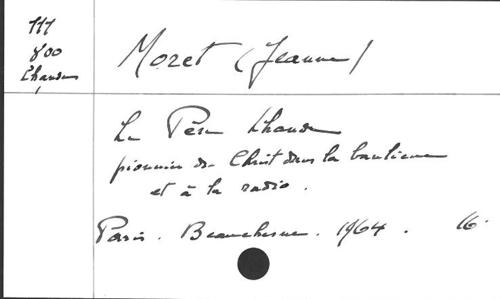 111
800
Lhande
Moret (Jeanne)
Le Père Lhande
pionnier du Christ dans la banlieue
et à la radio.
Paris. Beauchesne. 1964. 16°